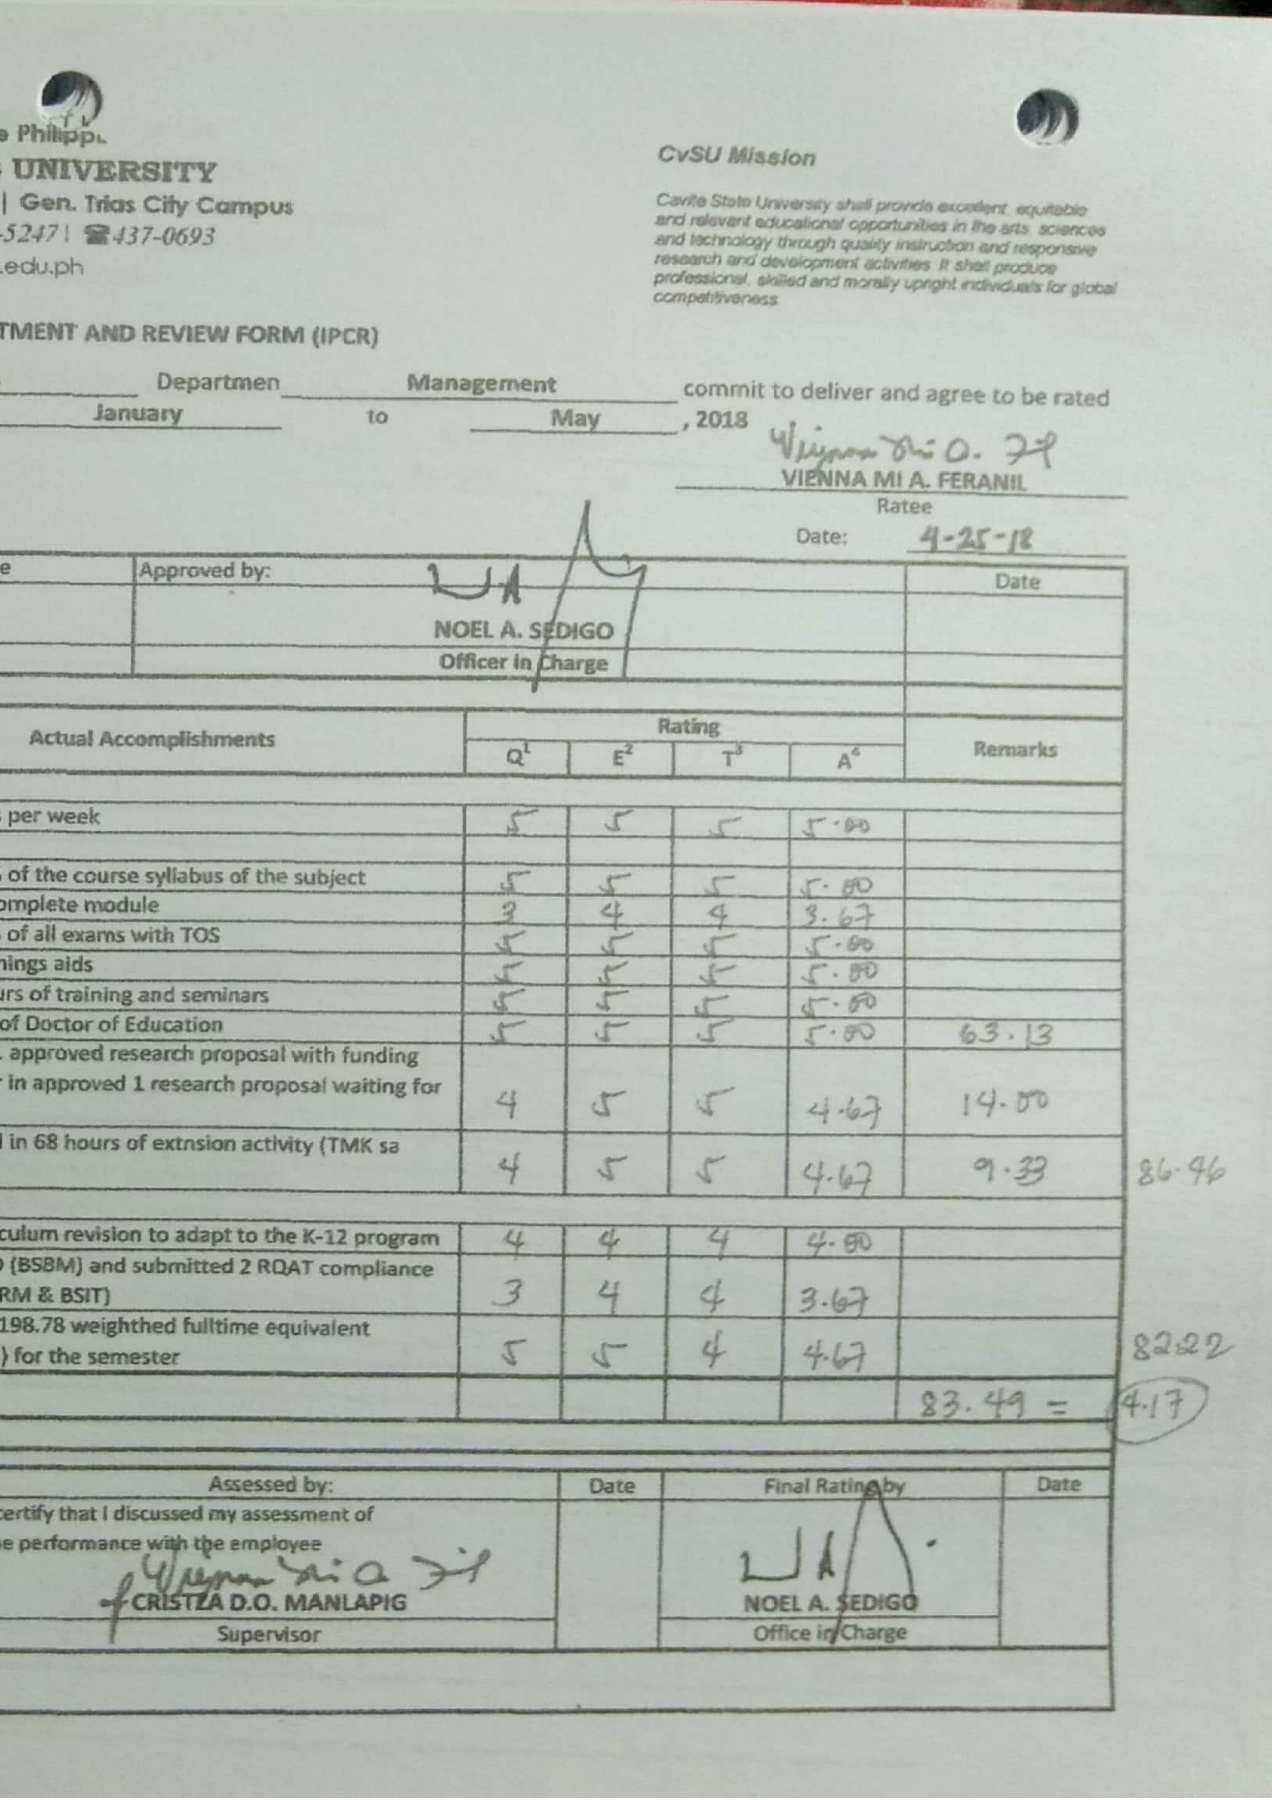 e Philipp
UNIVERSITY
| Gen. Trias City Campus
-5247| ☎437-0693
.edu.ph
CvSU Mission
Cavite State University shall provide excellent, equitable
and relevant educational opportunities in the arts, sciences
and technology through quality instruction and responsive
research and development activities. It shall produce
professional, skilled and morally upright individuals for global
competitiveness
TMENT AND REVIEW FORM (IPCR)
Departmen Management commit to deliver and agree to be rated
January to May , 2018
VIENNA MI A. FERANIL
Ratee
Date: 4-25-18
e Approved by: Date
NOEL A. SEDIGO
Officer in Charge
Actual Accomplishments Rating Remarks
Q1 E2 T3 A4
per week 5 5 5 5.00
of the course syllabus of the subject 5 5 5 5.00
omplete module 3 4 4 3.67
of all exams with TOS 5 5 5 5.00
nings aids 5 5 5 5.00
urs of training and seminars 5 5 5 5.00
of Doctor of Education 5 5 5 5.00 63.13
approved research proposal with funding
in approved 1 research proposal waiting for 4 5 5 4.67 14.00
in 68 hours of extnsion activity (TMK sa 4 5 5 4.67 9.33 86.46
culum revision to adapt to the K-12 program 4 4 4 4.00
(BSBM) and submitted 2 RQAT compliance
RM & BSIT) 3 4 4 3.67
198.78 weighthed fulltime equivalent
) for the semester 5 5 4 4.67 82.22
83.49 = 4.17
Assessed by: Date Final Rating by Date
certify that I discussed my assessment of
e performance with the employee
CRISTZA D.O. MANLAPIG NOEL A. SEDIGO
Supervisor Office in Charge